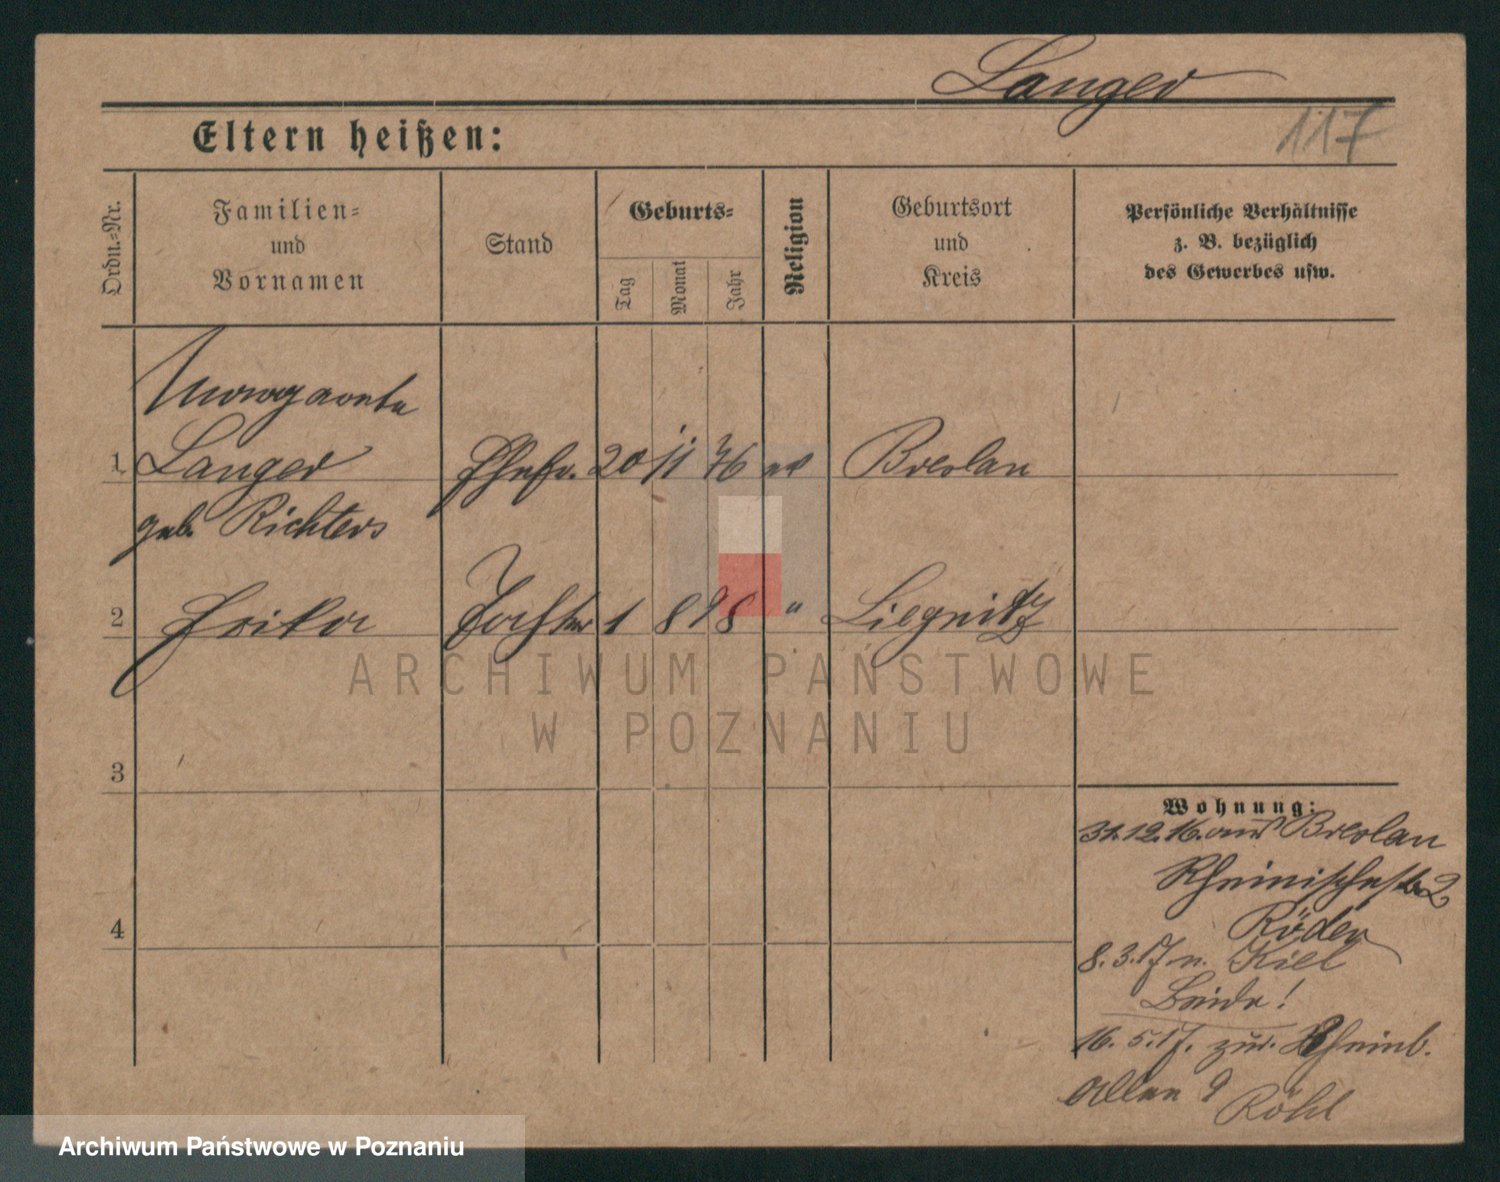 Langer
117
Eltern heißen:
Ordn.-Nr.
Familien-
und
Vornamen
Stand
Geburts-
Tag
Monat
Jahr
Religion
Geburtsort
und
Kreis
Persönliche Verhältnisse
z. B. bezüglich
des Gewerbes usw.
Margarete
1 Langer Ehefr. 20 11 76 ev Breslau
geb. Richters
2 Erika Tochter 1 8 98 " Liegnitz
ARCHIWUM PAŃSTWOWE
W POZNANIU
3
4
Wohnung:
31.12.16. aus Breslau
Rheinischestr. 2
Röder
8.3.17 n. Kiel
Beide!
16.5.17. zur. Rheinb.
Allee 9
Röhl
Archiwum Państwowe w Poznaniu